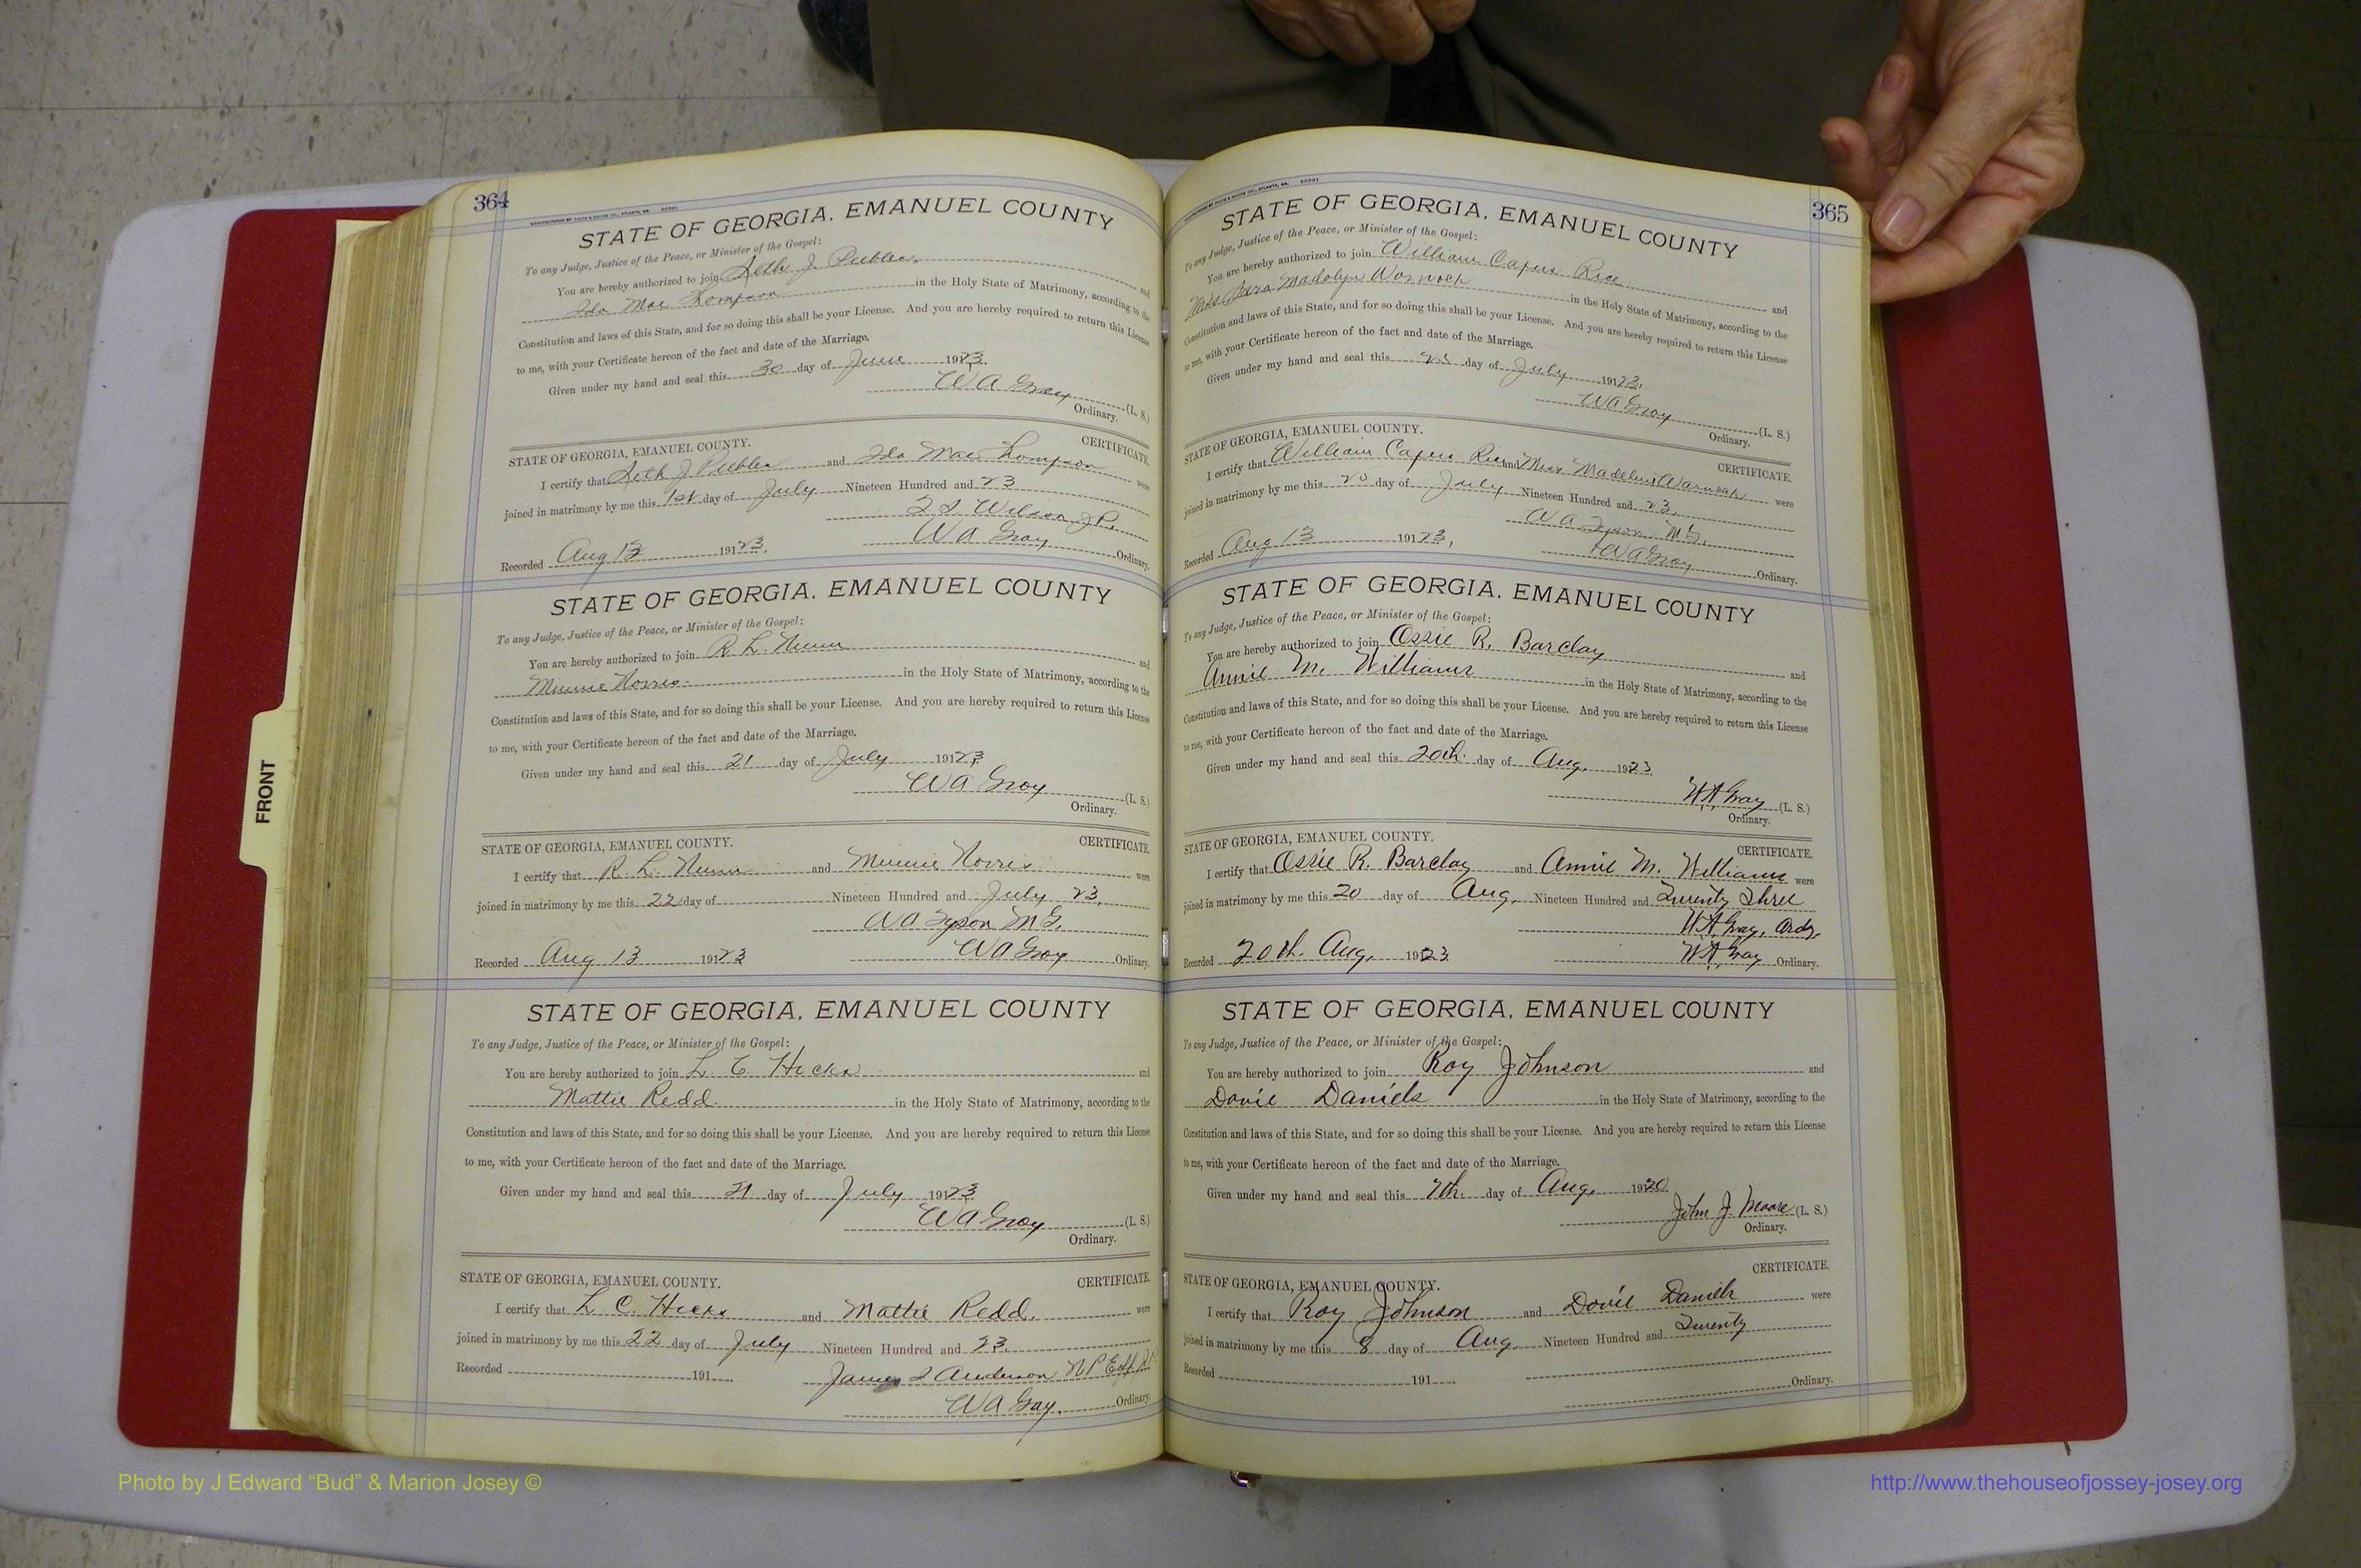 364
STATE OF GEORGIA, EMANUEL COUNTY
To any Judge, Justice of the Peace, or Minister of the Gospel:
You are hereby authorized to join Seth J. Peebles and
Ida Mae Thompson in the Holy State of Matrimony, according to the
Constitution and laws of this State, and for so doing this shall be your License. And you are hereby required to return this License
to me, with your Certificate hereon of the fact and date of the Marriage.
Given under my hand and seal this 30 day of June 1923.
W A Gray (L. S.)
Ordinary.
STATE OF GEORGIA, EMANUEL COUNTY. CERTIFICATE.
I certify that Seth J Peebles and Ida Mae Thompson were
joined in matrimony by me this 1st day of July Nineteen Hundred and 23
Wilson J.P.
Recorded Aug 13 1923. W A Gray Ordinary.
STATE OF GEORGIA, EMANUEL COUNTY
To any Judge, Justice of the Peace, or Minister of the Gospel:
You are hereby authorized to join R. L. Nunn and
Minnie Norris in the Holy State of Matrimony, according to the
Constitution and laws of this State, and for so doing this shall be your License. And you are hereby required to return this License
to me, with your Certificate hereon of the fact and date of the Marriage.
Given under my hand and seal this 21 day of July 1923
W A Gray (L. S.)
Ordinary.
STATE OF GEORGIA, EMANUEL COUNTY. CERTIFICATE.
I certify that R. L. Nunn and Minnie Norris were
joined in matrimony by me this 22 day of Nineteen Hundred and July 23.
W A Tyson M G.
Recorded Aug 13 1923 W A Gray Ordinary.
STATE OF GEORGIA, EMANUEL COUNTY
To any Judge, Justice of the Peace, or Minister of the Gospel:
You are hereby authorized to join L C Hicks and
Mattie Redd. in the Holy State of Matrimony, according to the
Constitution and laws of this State, and for so doing this shall be your License. And you are hereby required to return this License
to me, with your Certificate hereon of the fact and date of the Marriage.
Given under my hand and seal this 21 day of July 1923
W A Gray (L. S.)
Ordinary.
STATE OF GEORGIA, EMANUEL COUNTY. CERTIFICATE.
I certify that L C. Hicks and Mattie Redd. were
joined in matrimony by me this 22 day of July Nineteen Hundred and 23.
Recorded 191 James Anderson N.P.
W A Gray. Ordinary.
365
STATE OF GEORGIA, EMANUEL COUNTY
To any Judge, Justice of the Peace, or Minister of the Gospel:
You are hereby authorized to join William Capus Rice and
Miss Madolyn Warnock in the Holy State of Matrimony, according to the
Constitution and laws of this State, and for so doing this shall be your License. And you are hereby required to return this License
to me, with your Certificate hereon of the fact and date of the Marriage.
Given under my hand and seal this day of July 1923.
W A Gray (L. S.)
Ordinary.
STATE OF GEORGIA, EMANUEL COUNTY. CERTIFICATE.
I certify that William Capus Rice and Miss Warnock were
joined in matrimony by me this day of July Nineteen Hundred and 23.
W A Tyson M G.
Recorded Aug 13 1923, W A Gray Ordinary.
STATE OF GEORGIA, EMANUEL COUNTY
To any Judge, Justice of the Peace, or Minister of the Gospel:
You are hereby authorized to join Ossie R. Barclay and
Annie M. Williams in the Holy State of Matrimony, according to the
Constitution and laws of this State, and for so doing this shall be your License. And you are hereby required to return this License
to me, with your Certificate hereon of the fact and date of the Marriage.
Given under my hand and seal this 20th. day of Aug. 1923
W.A. Gray (L. S.)
Ordinary.
STATE OF GEORGIA, EMANUEL COUNTY. CERTIFICATE.
I certify that Ossie R. Barclay and Annie M. Williams were
joined in matrimony by me this 20 day of Aug. Nineteen Hundred and Twenty Three
W.A. Gray, Ordy.
Recorded 20th. Aug. 1923 W.A. Gray Ordinary.
STATE OF GEORGIA, EMANUEL COUNTY
To any Judge, Justice of the Peace, or Minister of the Gospel:
You are hereby authorized to join Roy Johnson and
Dovie Daniels in the Holy State of Matrimony, according to the
Constitution and laws of this State, and for so doing this shall be your License. And you are hereby required to return this License
to me, with your Certificate hereon of the fact and date of the Marriage.
Given under my hand and seal this 7th. day of Aug. 1920.
John J. Moore (L. S.)
Ordinary.
STATE OF GEORGIA, EMANUEL COUNTY. CERTIFICATE.
I certify that Roy Johnson and Dovie Daniels were
joined in matrimony by me this 8 day of Aug. Nineteen Hundred and Twenty
Recorded 191
Ordinary.
FRONT
Photo by J Edward “Bud” & Marion Josey ©
http://www.thehouseofjossey-josey.org